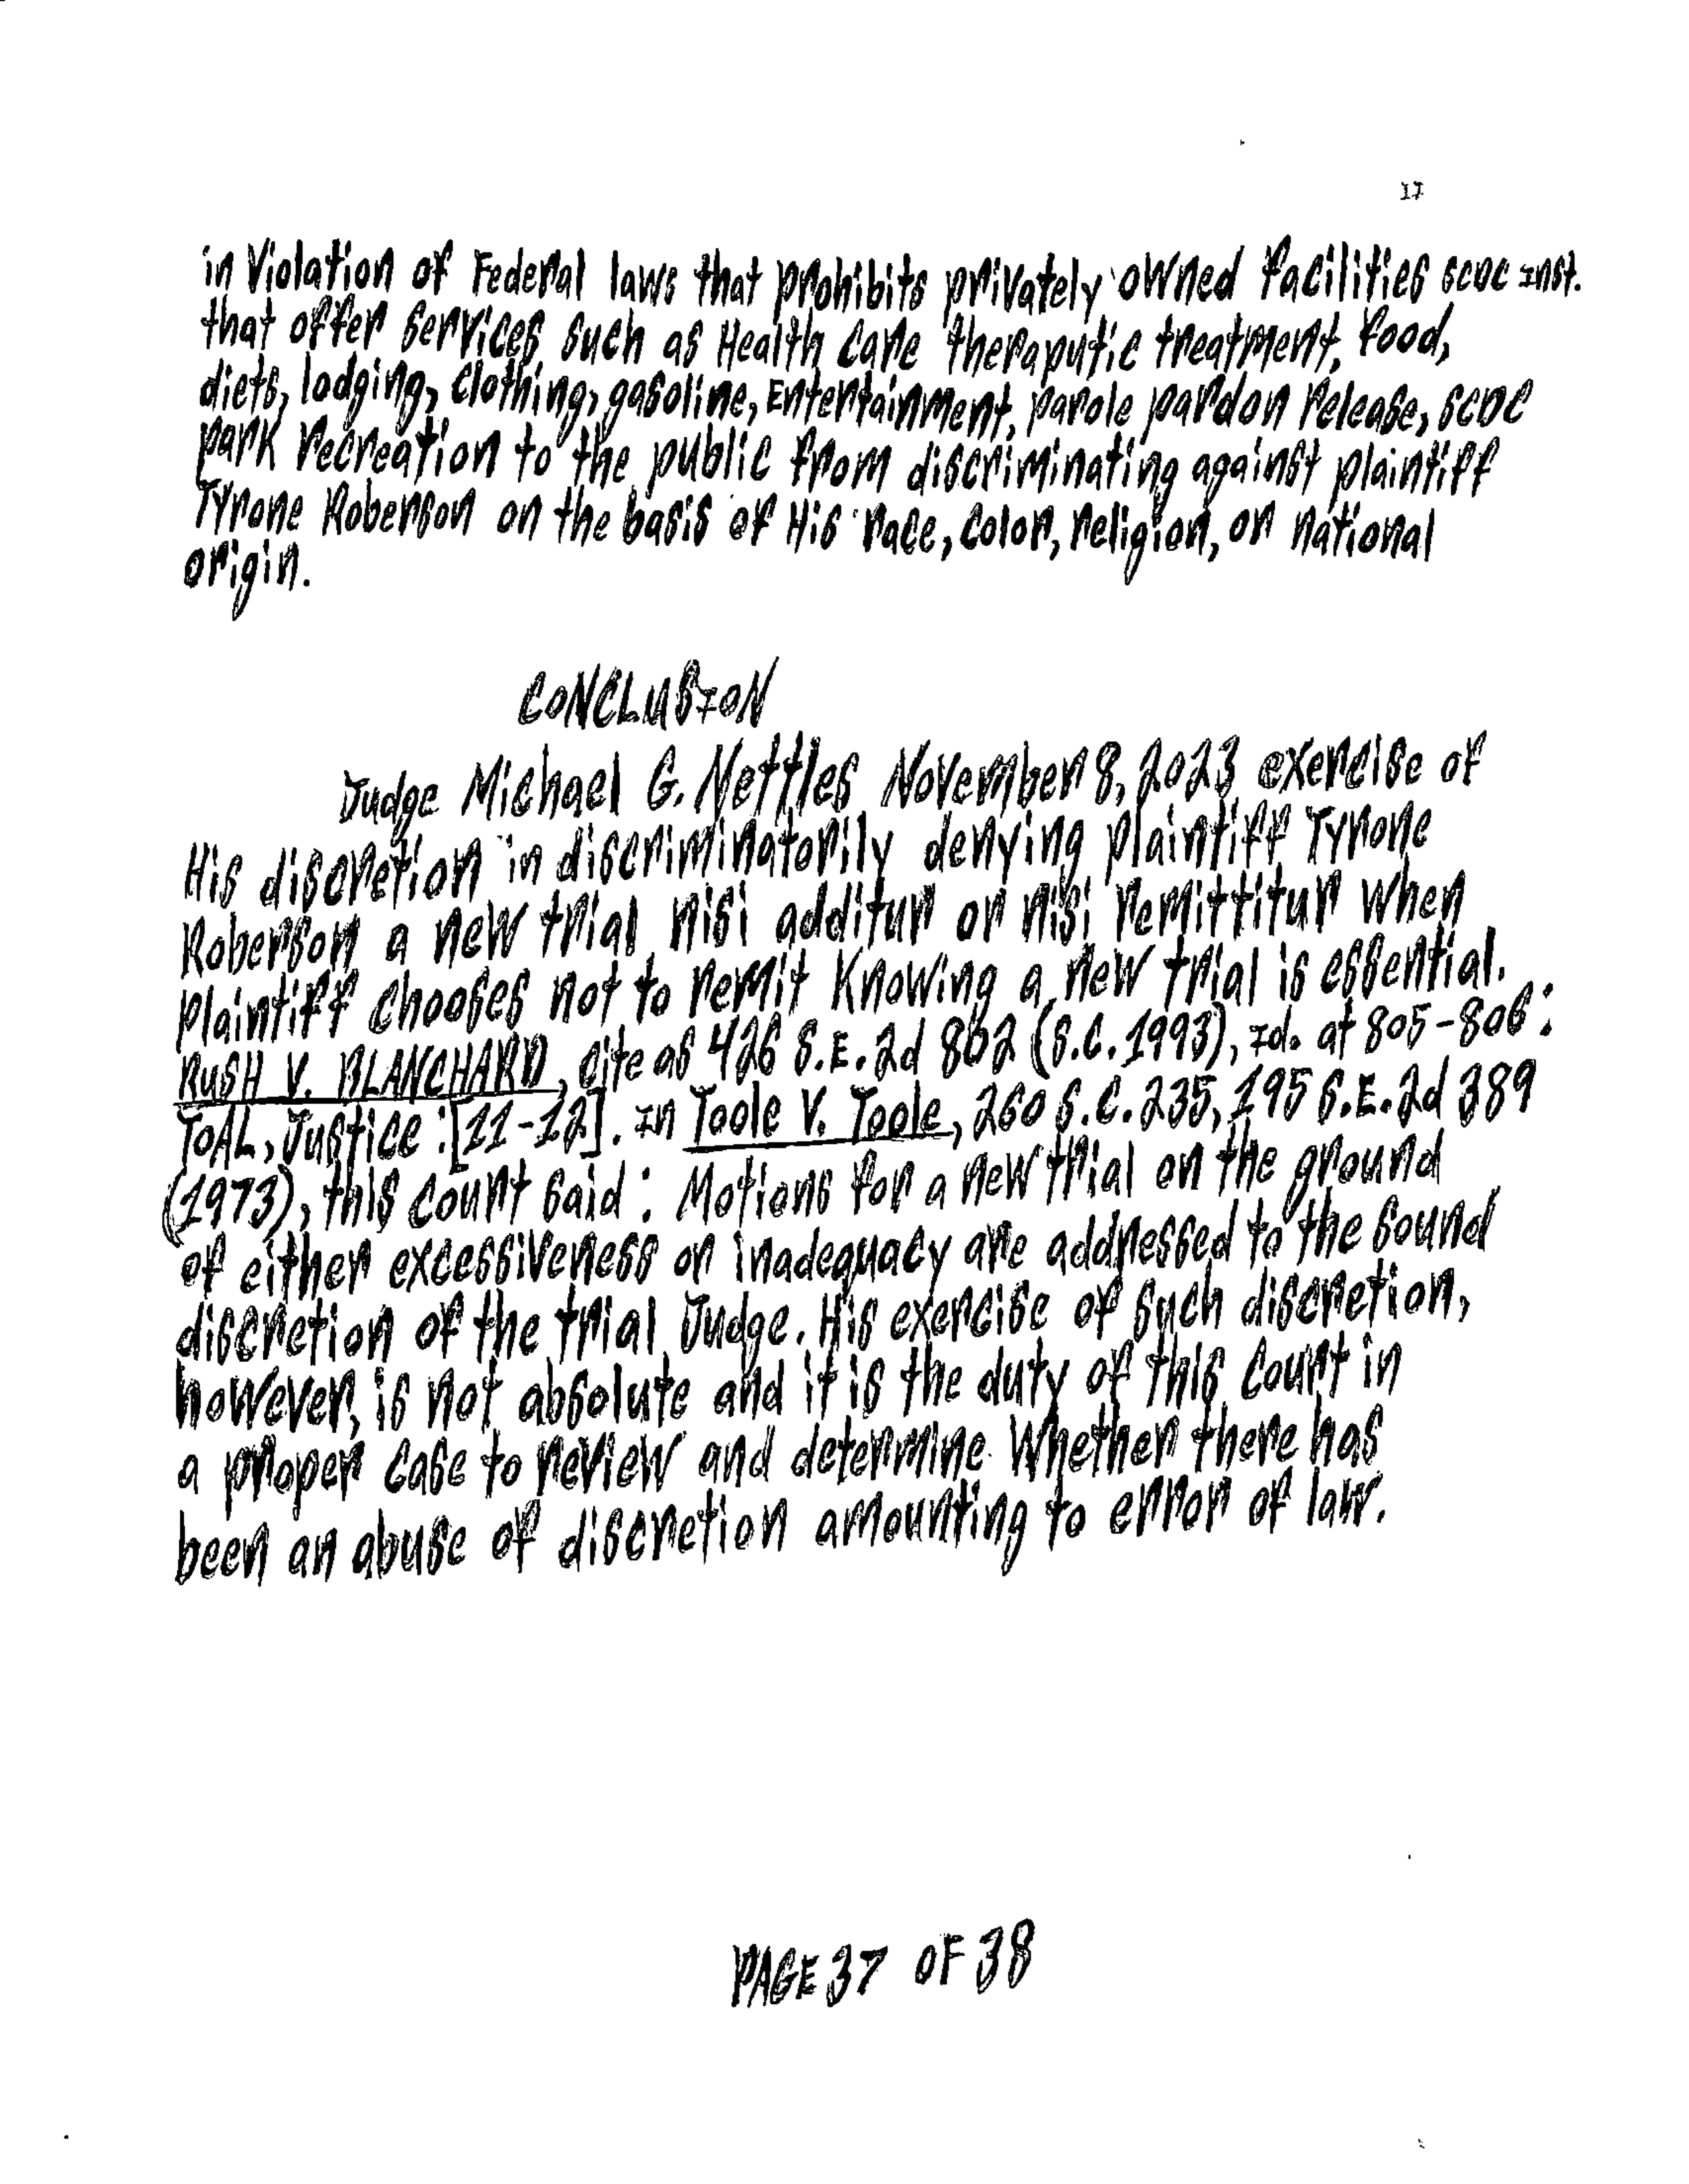 17
in Violation of Federal laws that prohibits privately owned facilities SCDC Inst.
that offer services such as Health care theraputic treatment, food,
diets, lodging, clothing, gasoline, Entertainment, parole pardon release, SCDC
park recreation to the public from discriminating against plaintiff
Tyrone Roberson on the basis of His race, color, religion, or national
origin.
CONCLUSION
Judge Michael G. Nettles November 8, 2023 exercise of
His discretion in discriminatorily denying plaintiff Tyrone
Roberson a new trial nisi additur or nisi remittitur when
plaintiff chooses not to remit Knowing a new trial is essential.
RUSH V. BLANCHARD, cite as 426 S.E.2d 802 (S.C.1993), Id. at 805-806:
TOAL, Justice:[11-12]. In Toole V. Toole, 260 S.C.235, 195 S.E.2d 389
(1973), this court said: Motions for a new trial on the ground
of either excessiveness or inadequacy are addressed to the sound
discretion of the trial Judge. His exercise of such discretion,
however, is not absolute and it is the duty of this Court in
a proper case to review and determine Whether there has
been an abuse of discretion amounting to error of law.
PAGE 37 OF 38